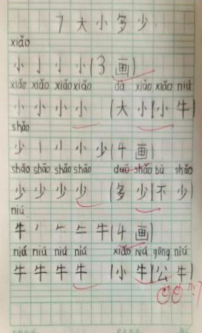 7 大小多少
xiǎo
小 亅 小 小 (3画)
xiǎo xiǎo xiǎo xiǎo dà xiǎo xiǎo niú
小 小 小 小 (大小)(小牛)
shǎo
少 丨 小 小 少 (4画)
shǎo shǎo shǎo shǎo duō shǎo bù shǎo
少 少 少 少 (多少)(不少)
niú
牛 丿 𠂉 牛 (4画)
niú niú niú niú xiǎo niú gōng niú
牛 牛 牛 牛 (小牛)(公牛)